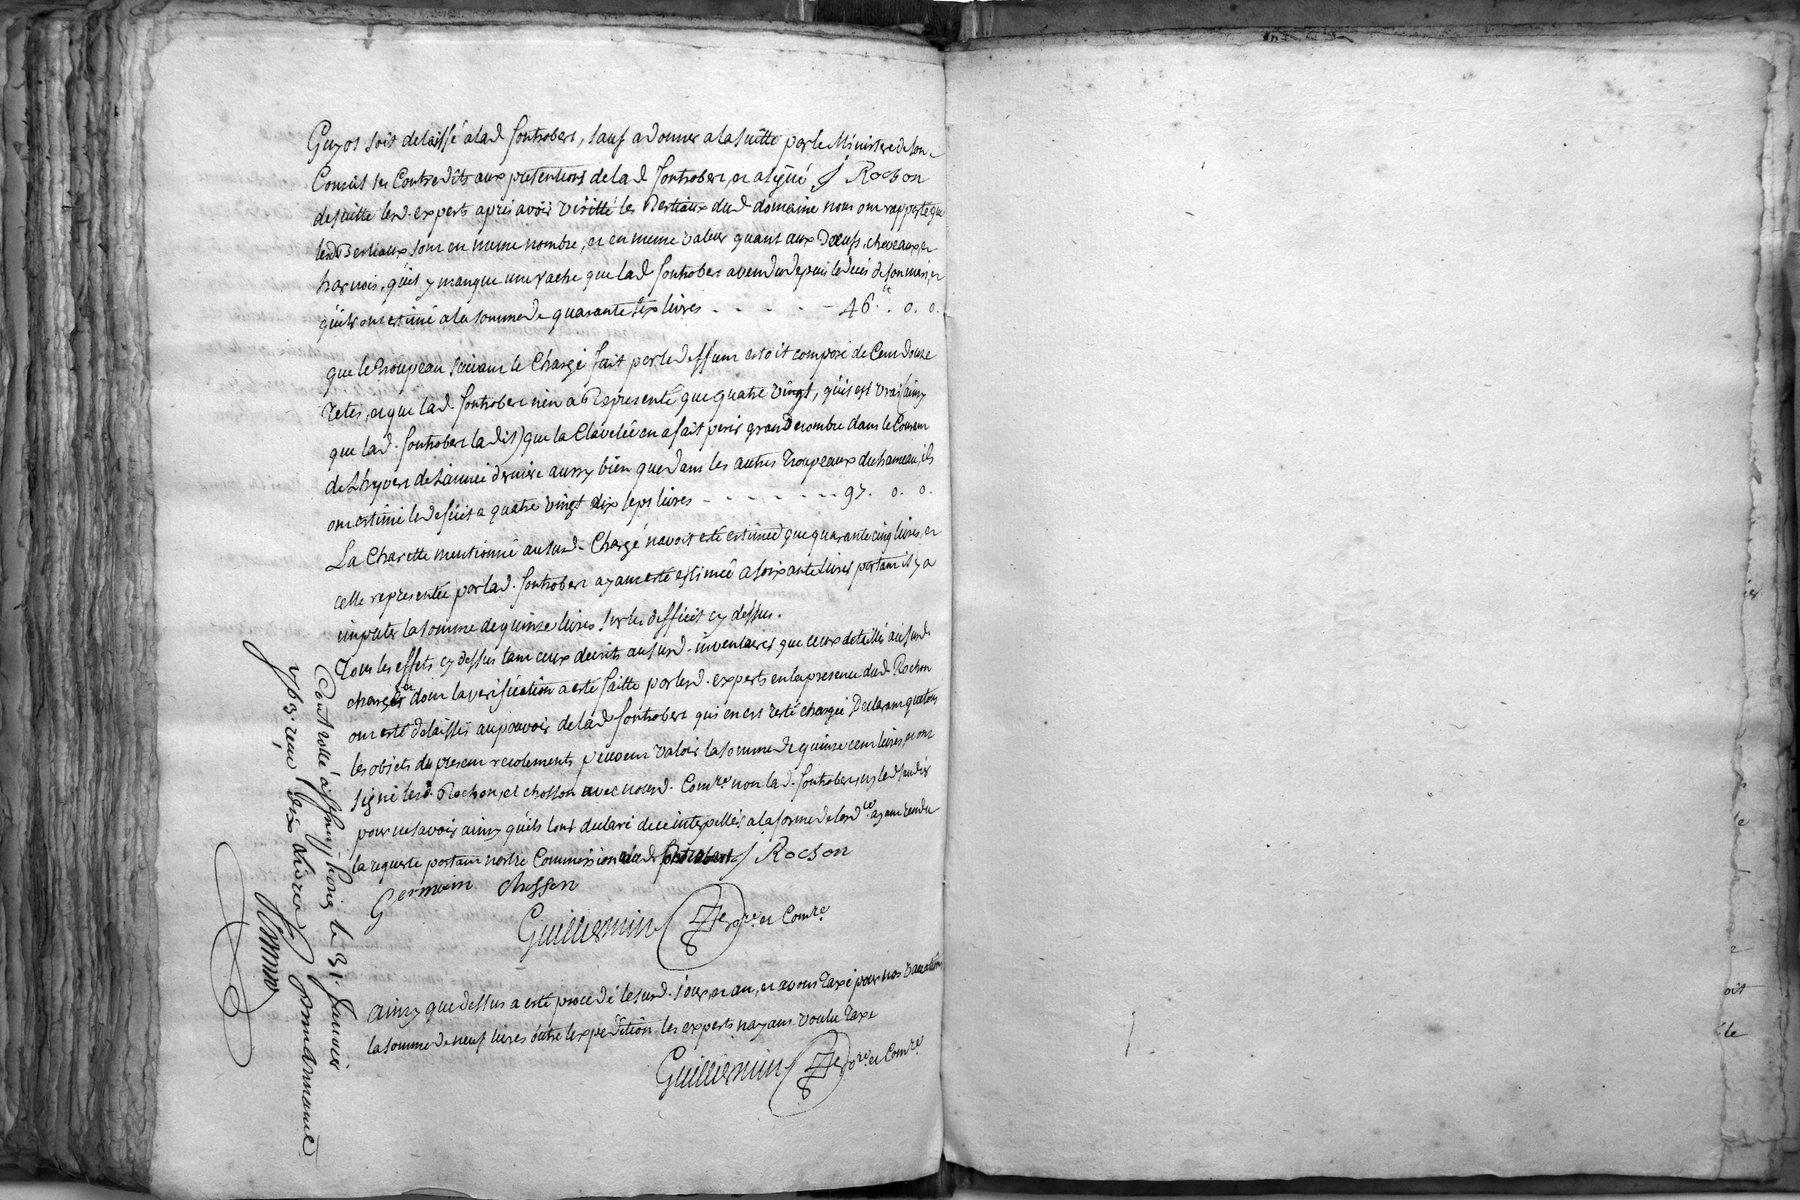 Guyot soit delaissé a lad. fontrobert, sauf a donner a la suitte par le Ministere de son
Conseil ses Contredits aux pretentions de lad. fontrobert, et a signé J Rochon
de suitte lesd. experts apres avoir visitté les Bestiaux dud. domaine nous ont rapporté que
lesd. Bestiaux sont en meme nombre, et en meme valeur quant aux Bœufs, cheveaux, et
harnois, quil y manque une vache que lad. fontrobert a vendu depuis le deces de son mari, et
quils ont estimé a la somme de quarante six livres - - - - - 46.tt 0. 0.
que le troupeau suivant le Chargé fait par le deffunt estoit composé de Cent douze
Tetes, et que lad. fontrobert nen a Representé que quatre vingt, quil est vraisainy
que lad. fontrobert la dit) que la Clavelée en a fait perir grand nombre dans le Courant
de Lhyver de Lannée derniere aussy bien que dans les autres Troupeaux du hameau, ils
ont estimé le deficit a quatre vingt dix sept livres - - - - - - - 97. 0. 0.
La Charette mentionné au susd. Chargé navoit esté estimée que quarante cinq livres, et
celle representée par lad. fontrobert ayant esté estimée a soixante livres partant il y a
imputer la somme de quinze livres sur le defficit cy dessus.
Tous les effets cy dessus tant ceux decrits au susd. inventaires que ceux detaillés au susd.
chargé et dont la verification a esté faitte par lesd. experts en la presence dud. Rochon
ont esté delaissés au pouvoir de lad. fontrobert qui en est resté chargée Declarant que tous
les objets du present recolements peuvent valoir la somme de quinze cent livres, et ont
signé lesd. Rochon, et chosson avec nousd. Comre non lad. fontrobert, ny led.
pour ne savoir ainsy quils lont declaré de ce interpellés a la forme de lordce ayant rendu
la requeste portant nostre Commission J Rochon
Germain Chosson
Guillermin Nore et Comre
Ainsy que dessus a esté procedé le susd. jour, et an, et avons Taxé pour nos vacations
la somme de neuf livres outre lexpedition, les experts nayant voulu Taxe
Guillermin Nore et Comre
Controllé a le 31. Janvier
reçu dix livres